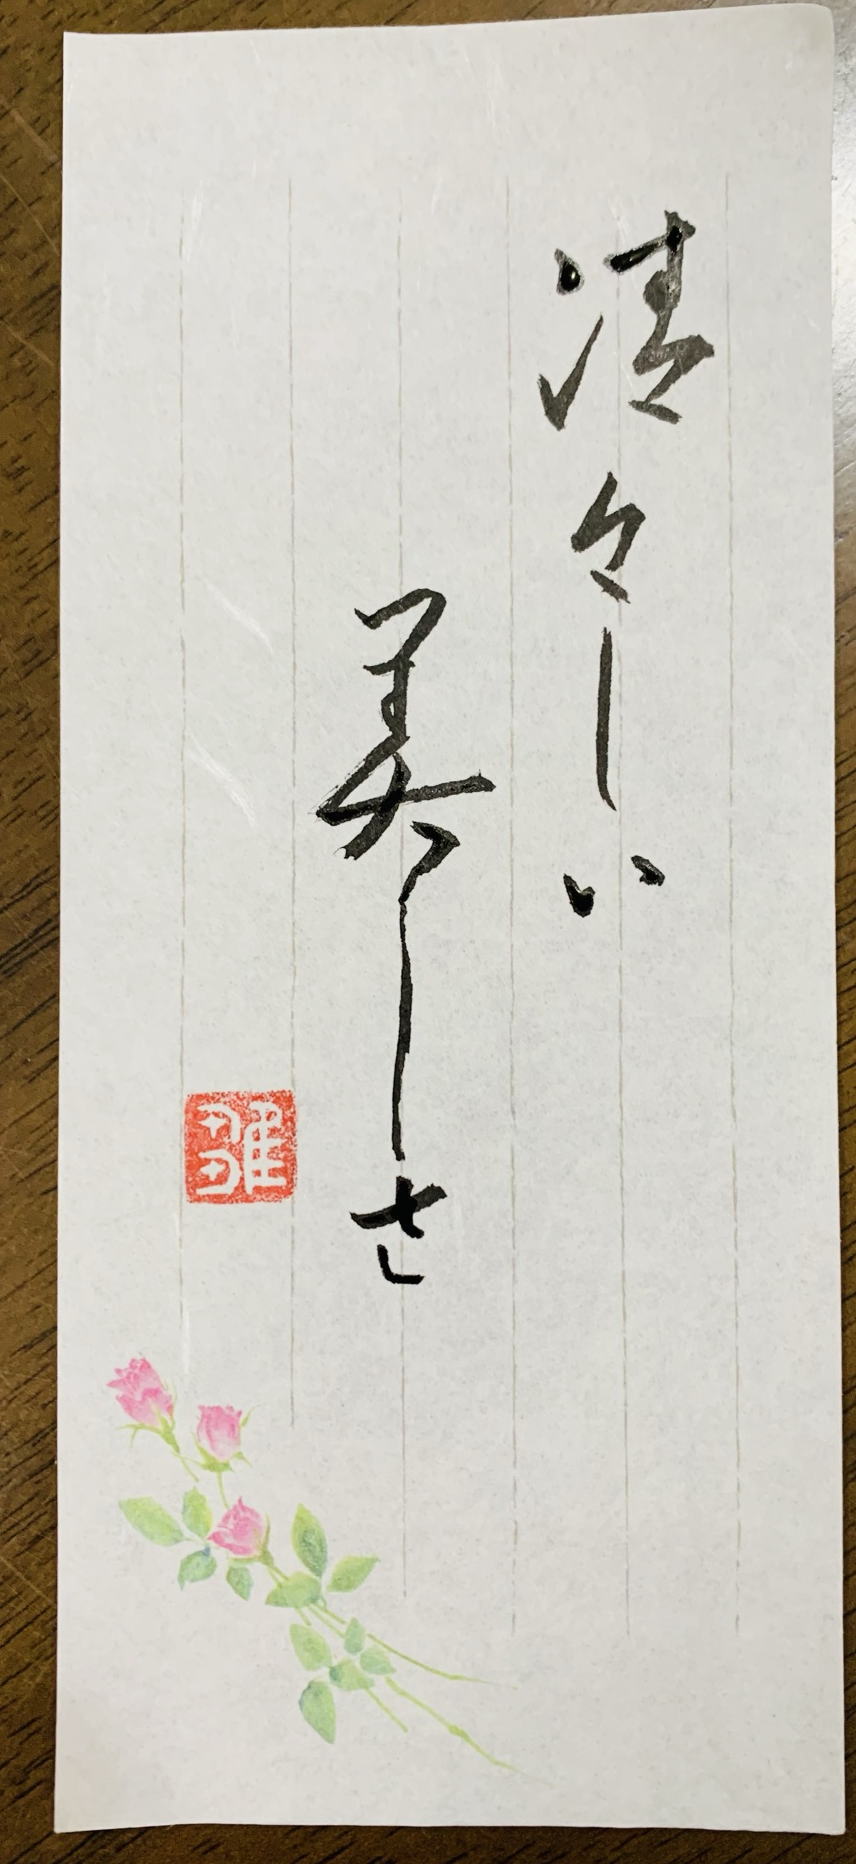 清々しい
美しさ
雛